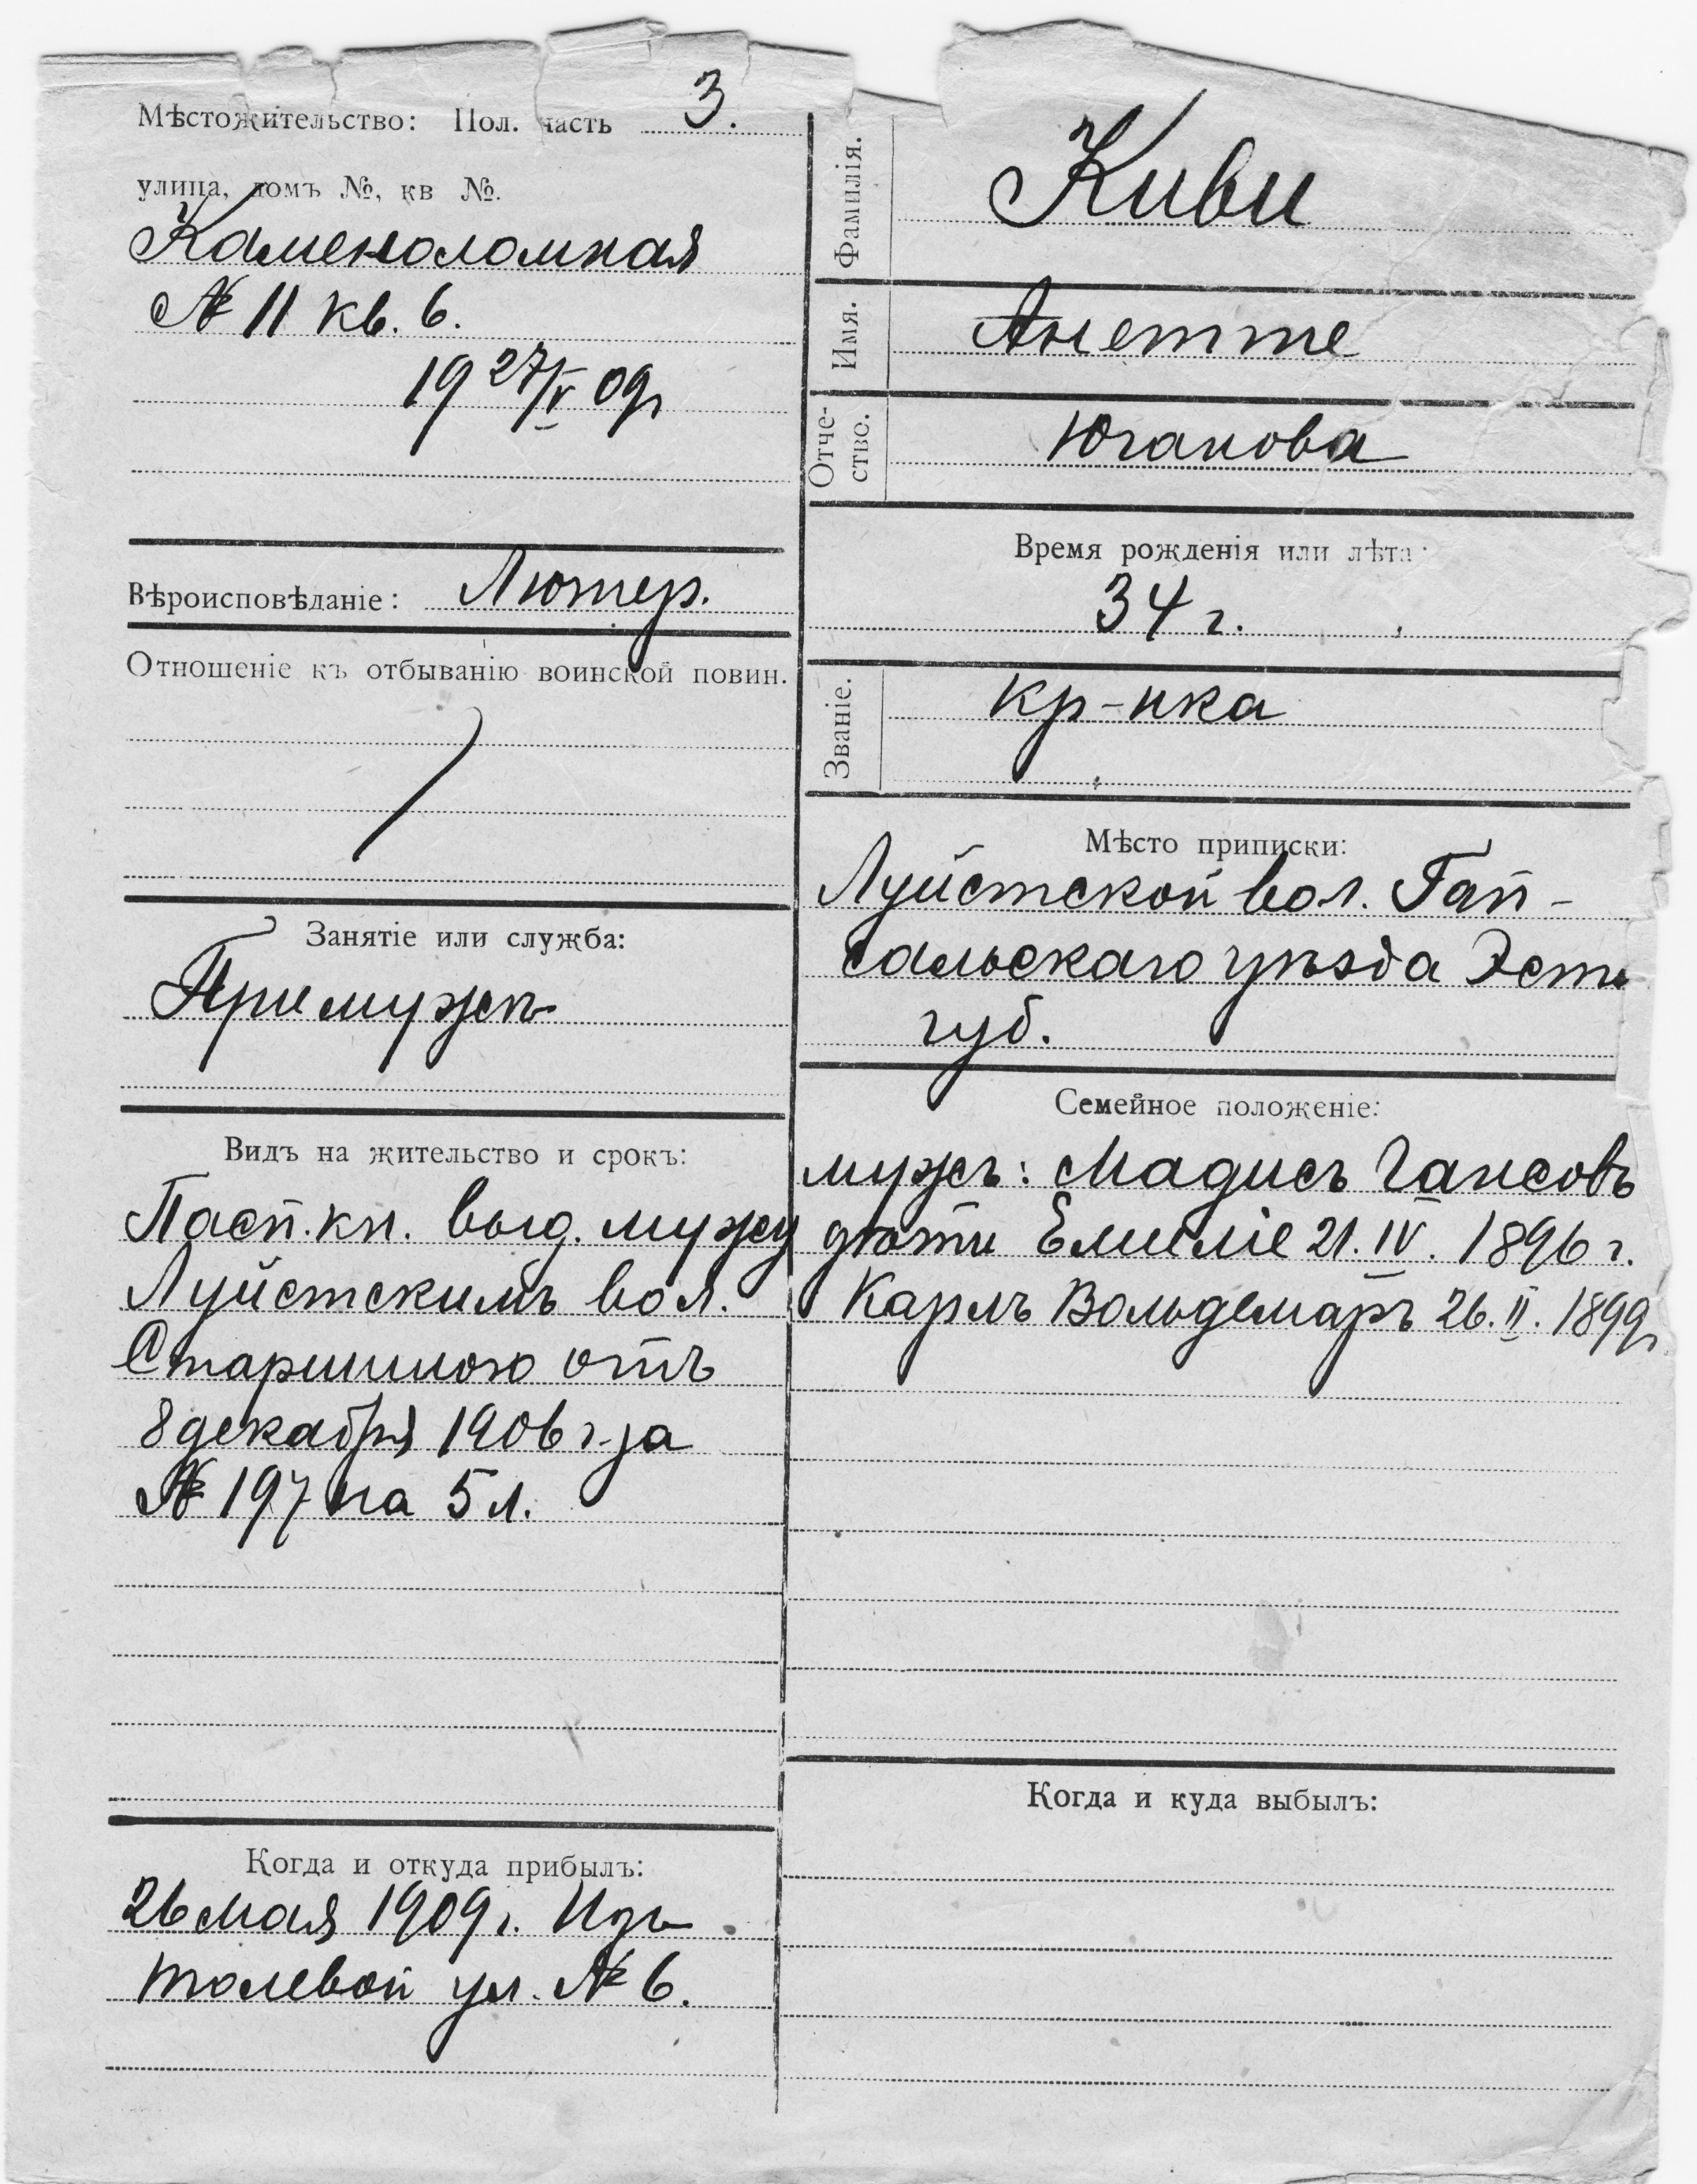 Мѣстожительство: Пол. часть 3.
улица, домъ №, кв №.
Каменоломная
№ 11 кв. 6.
19 27/V 09 г
Вѣроисповѣданіе: Лютер.
Отношеніе къ отбыванію воинской повин.
Занятіе или служба:
При мужѣ
Видъ на жительство и срокъ:
Пасп. кн. выд. мужу
Луйстскимъ вол.
Старшиною отъ
8 декабря 1906 г. за
№ 197 на 5 л.
Когда и откуда прибылъ:
26 мая 1909 г. Изъ
толевой ул. № 6.
Фамилія. Киви
Имя. Анетте
Отче-
ство. Юганова
Время рожденія или лѣта:
34 г.
Званіе. кр-нка
Мѣсто приписки:
Луйстской вол. Гап-
сальскаго уѣзда Эстл
губ.
Семейное положеніе:
мужъ: Мадисъ Гансовъ
дѣти Емиліе 21. IV. 1896 г.
Карлъ Вольдемаръ 26. II. 1899 г.
Когда и куда выбылъ: